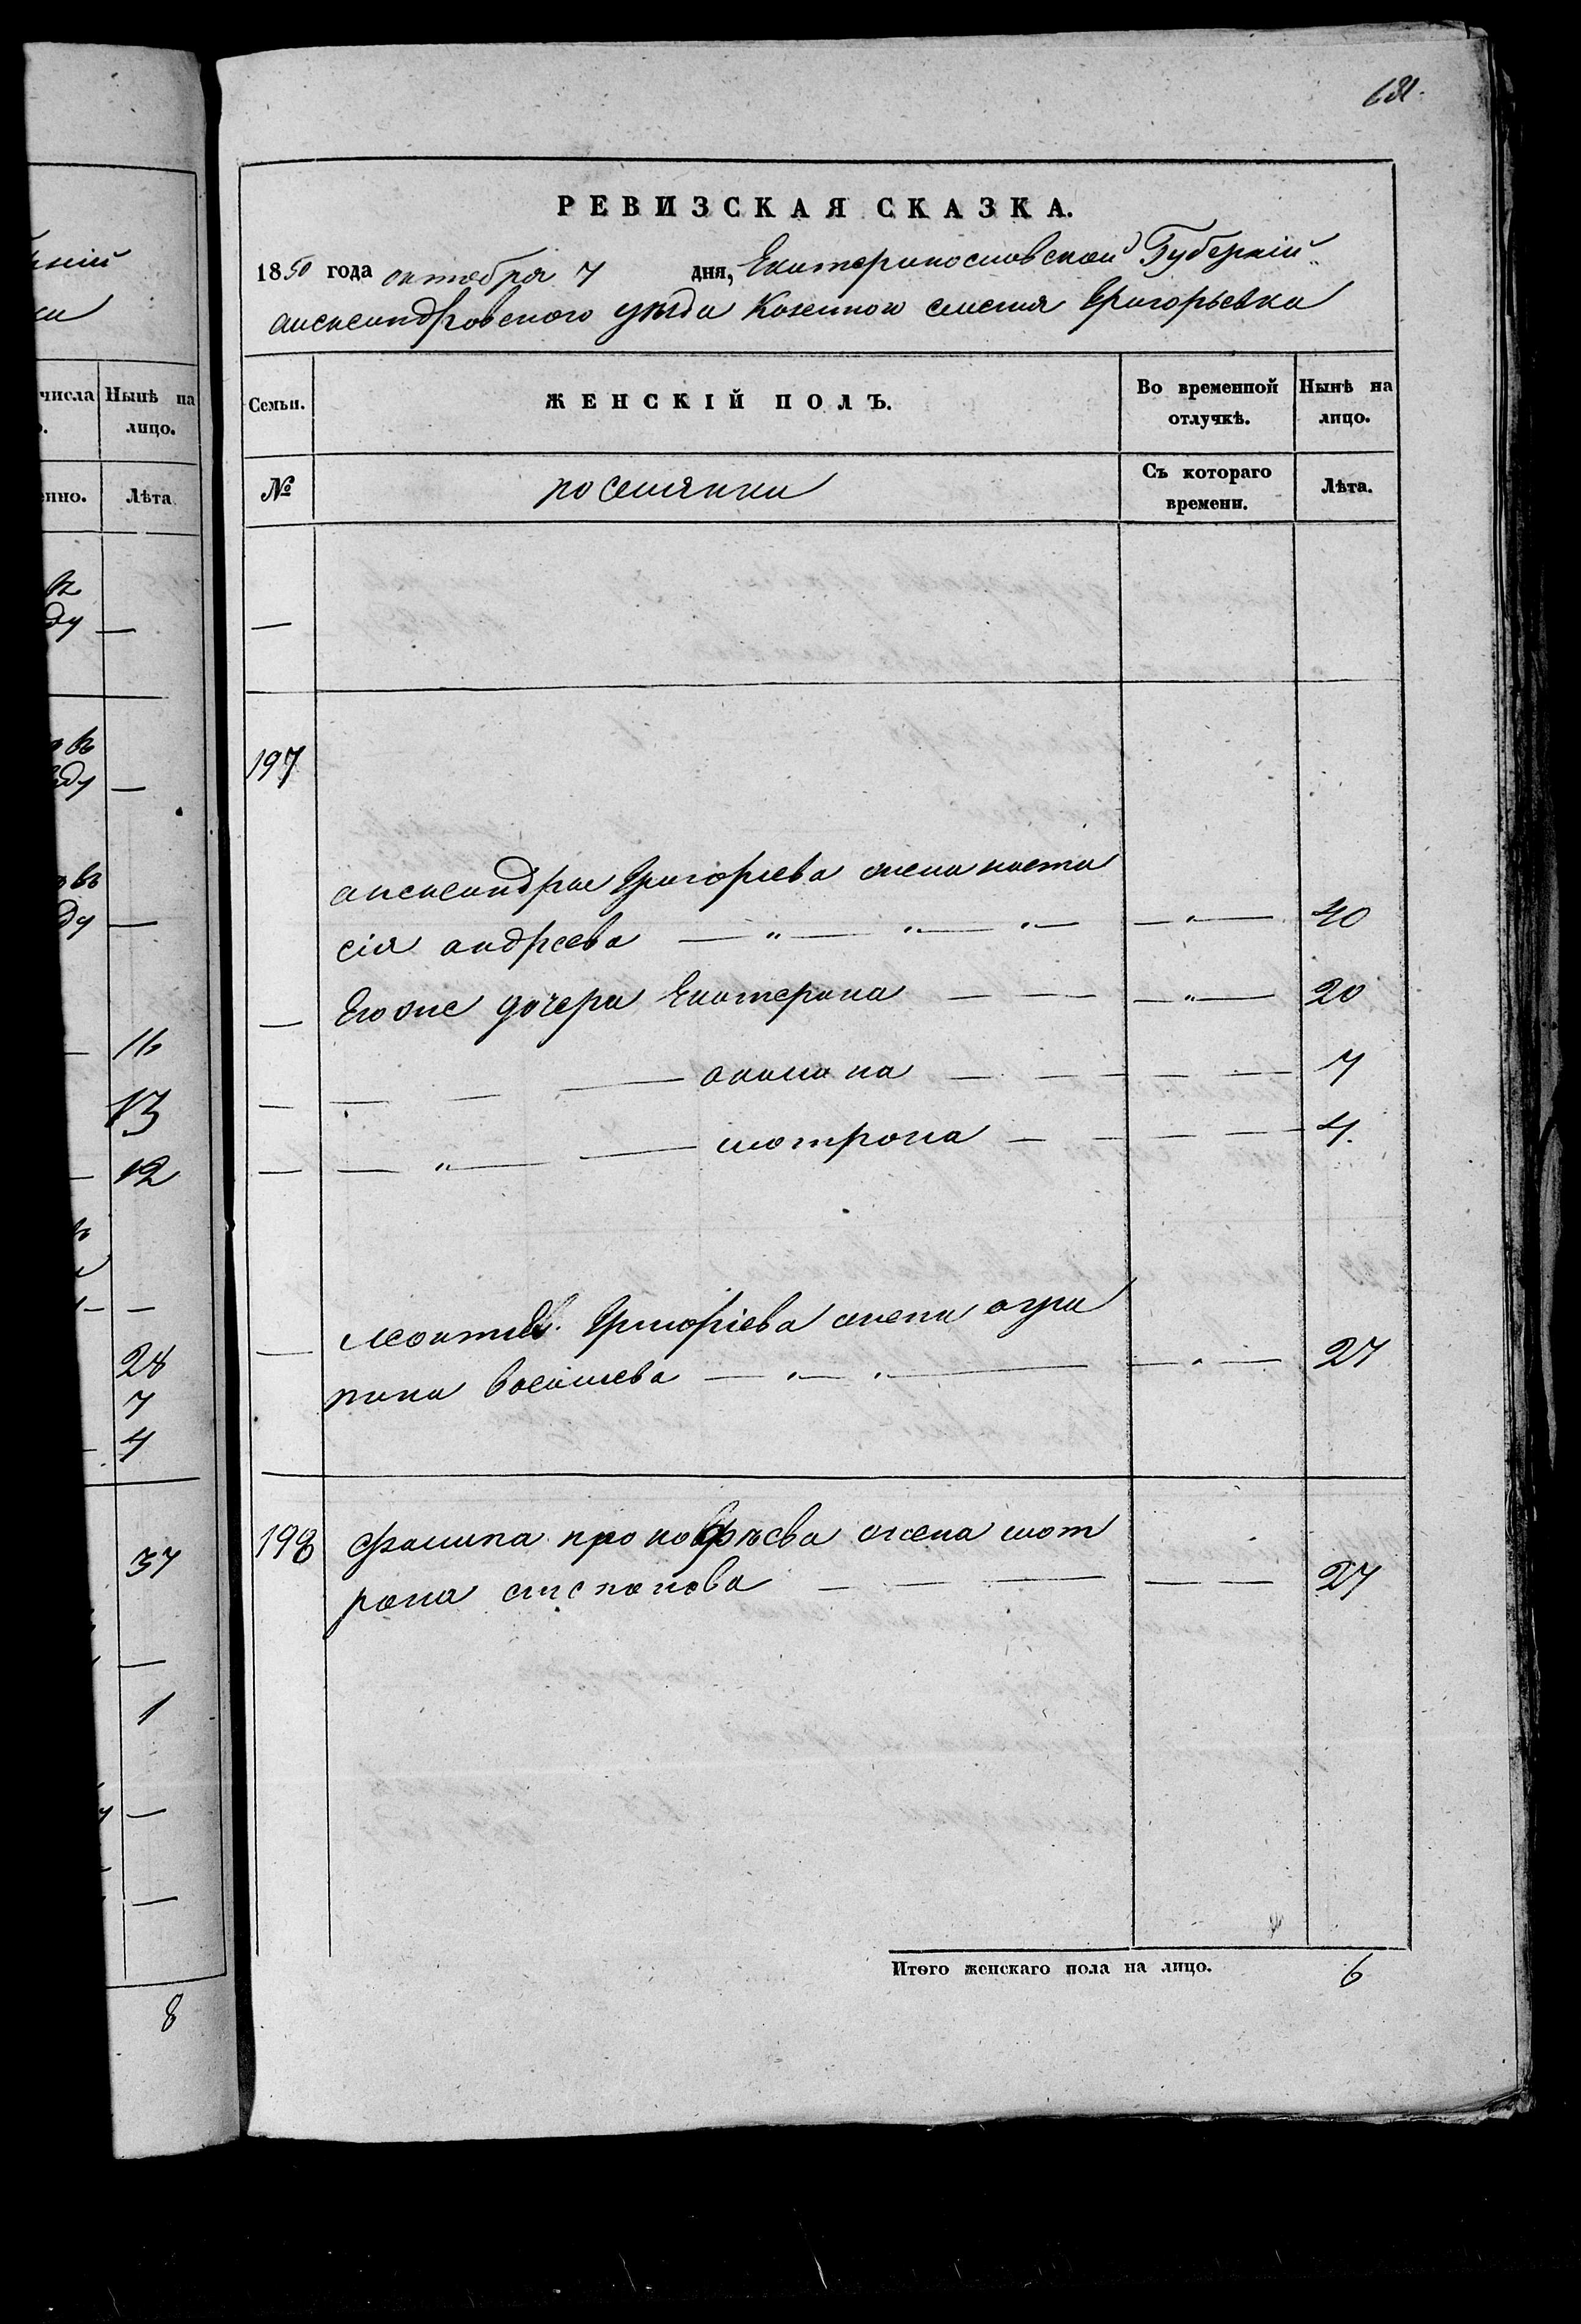 681.
РЕВИЗСКАЯ СКАЗКА.
1850 года октября 7 дня, Екатеринославской Губерніи
александровского уѣзда Козенного селенія Григорьевка
Семьи. ЖЕНСКІЙ ПОЛЪ. Во временной отлучкѣ. Нынѣ на лицо.
№ поселянки Съ котораго времени. Лѣта.
—
197
александра Григоріева жена наста
сія андреева — „ — „ — „ — — „ — 40
— Егоже дочери Екатерина — — — „ — 20
— — — — акилина — — — — 7
— — „ — — мотрона — — — — 4.
— леонтия Григоріева жена огри
пина василева — „ — „ — — „ — 27
198 фомина прокофьева жена мот
рона степанова — — — — — 27
Итого женскаго пола на лицо. 6
числа Нынѣ на лицо.
Лѣта
—
—
—
16
13
12
—
28
7
4
37
—
1
—
—
8